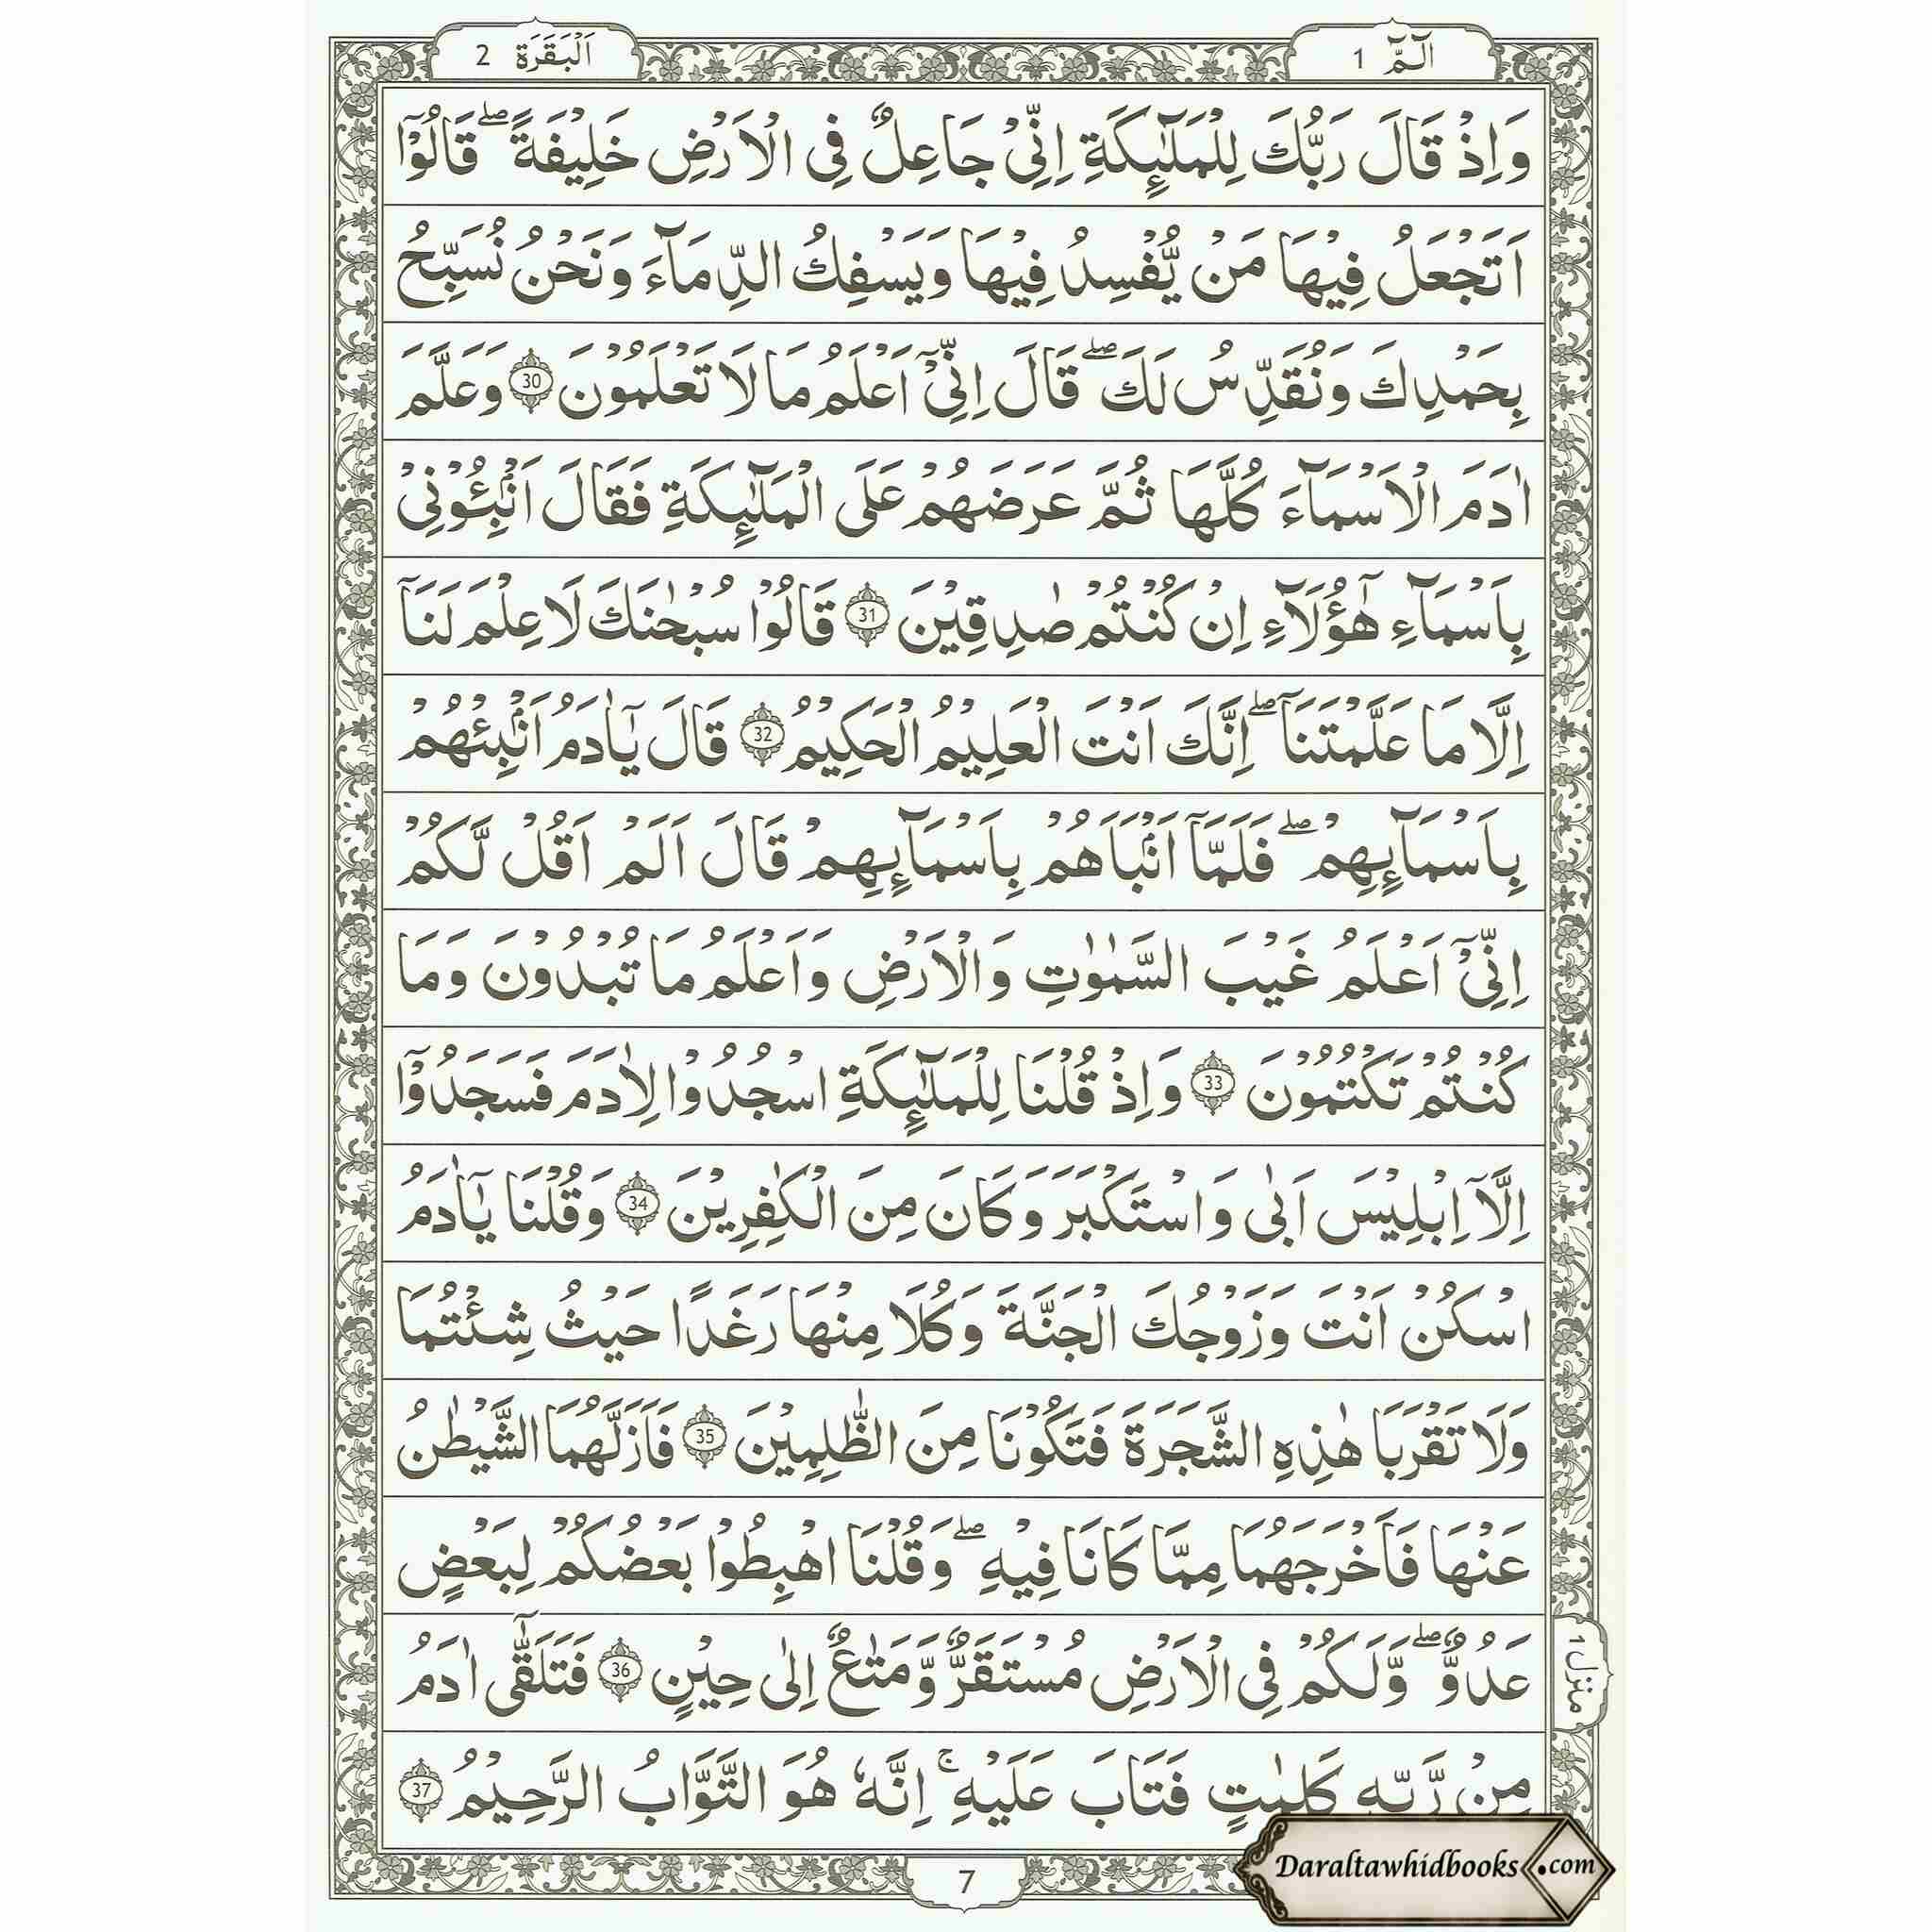 الٓـمّٓ 1
اَلْبَقَرَة 2
وَاِذْ قَالَ رَبُّكَ لِلْمَلٰٓئِكَةِ اِنِّىْ جَاعِلٌ فِى الْاَرْضِ خَلِيْفَةً ۖ قَالُوْٓا
اَتَجْعَلُ فِيْهَا مَنْ يُّفْسِدُ فِيْهَا وَيَسْفِكُ الدِّمَآءَ وَنَحْنُ نُسَبِّحُ
بِحَمْدِكَ وَنُقَدِّسُ لَكَ ۖ قَالَ اِنِّىْٓ اَعْلَمُ مَا لَا تَعْلَمُوْنَ 30 وَعَلَّمَ
اٰدَمَ الْاَسْمَآءَ كُلَّهَا ثُمَّ عَرَضَهُمْ عَلَى الْمَلٰٓئِكَةِ فَقَالَ اَنْۢبِئُوْنِىْ
بِاَسْمَآءِ هٰٓؤُلَآءِ اِنْ كُنْتُمْ صٰدِقِيْنَ 31 قَالُوْا سُبْحٰنَكَ لَا عِلْمَ لَنَآ
اِلَّا مَا عَلَّمْتَنَا ۖ اِنَّكَ اَنْتَ الْعَلِيْمُ الْحَكِيْمُ 32 قَالَ يٰٓاٰدَمُ اَنْۢبِئْهُمْ
بِاَسْمَآئِهِمْ ۖ فَلَمَّآ اَنْۢبَاَهُمْ بِاَسْمَآئِهِمْ قَالَ اَلَمْ اَقُلْ لَّكُمْ
اِنِّىْٓ اَعْلَمُ غَيْبَ السَّمٰوٰتِ وَالْاَرْضِ وَاَعْلَمُ مَا تُبْدُوْنَ وَمَا
كُنْتُمْ تَكْتُمُوْنَ 33 وَاِذْ قُلْنَا لِلْمَلٰٓئِكَةِ اسْجُدُوْا لِاٰدَمَ فَسَجَدُوْٓا
اِلَّآ اِبْلِيْسَ اَبٰى وَاسْتَكْبَرَ وَكَانَ مِنَ الْكٰفِرِيْنَ 34 وَقُلْنَا يٰٓاٰدَمُ
اسْكُنْ اَنْتَ وَزَوْجُكَ الْجَنَّةَ وَكُلَا مِنْهَا رَغَدًا حَيْثُ شِئْتُمَا
وَلَا تَقْرَبَا هٰذِهِ الشَّجَرَةَ فَتَكُوْنَا مِنَ الظّٰلِمِيْنَ 35 فَاَزَلَّهُمَا الشَّيْطٰنُ
عَنْهَا فَاَخْرَجَهُمَا مِمَّا كَانَا فِيْهِ ۖ وَقُلْنَا اهْبِطُوْا بَعْضُكُمْ لِبَعْضٍ
عَدُوٌّ ۖ وَّلَكُمْ فِى الْاَرْضِ مُسْتَقَرٌّ وَّمَتَاعٌ اِلٰى حِيْنٍ 36 فَتَلَقّٰٓى اٰدَمُ
مِنْ رَّبِّهٖ كَلِمٰتٍ فَتَابَ عَلَيْهِ ۚ اِنَّهٗ هُوَ التَّوَّابُ الرَّحِيْمُ 37
منزل ١
7
Daraltawhidbooks.com